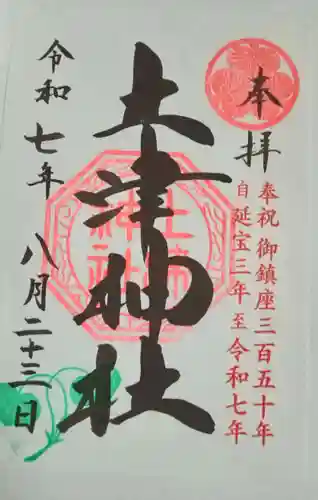 奉拝
奉祝 御鎮座三百五十年
自 延宝三年 至 令和七年
土津神社
土津
神社
令和七年 八月二十三日